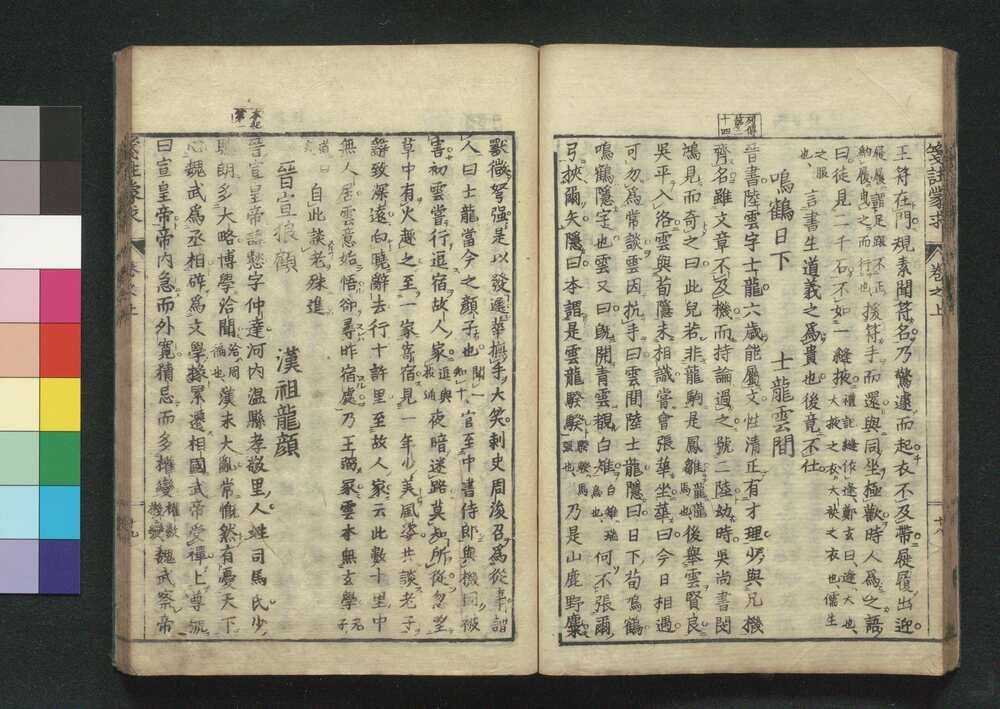 箋註蒙求 卷之上 十八
王符在門規素聞符名乃驚遽而起衣不及帶屣履出迎
屣履謂足躡不正納履曳之而行也援符手而還與同坐極歡時人爲之語
曰徒見二千石不如一縫掖禮記縫作逢鄭玄曰逢大也大掖之衣大袂之衣也儒生
之服也言書生道義之爲貴也後竟不仕
鳴鶴日下 士龍雲間
列傳第二十四
晉書陸雲字士龍六歲能屬文性清正有才理少與兄機
齊名雖文章不及機而持論過之號二陸幼時吳尚書閔
鴻見而奇之曰此兒若非龍駒是鳳雛龍馬也後舉雲賢良
吳平入洛雲與荀隱未相識嘗會張華坐華曰今日相遇
可勿爲常談雲因抗手曰雲間陸士龍隱曰日下荀鳴鶴
鳴鶴隱字也雲又曰既開青雲覩白雉白雉瑞爲也何不張爾
弓挾爾矢隱曰本謂是雲龍騤騤騤騤馬强也乃是山鹿野麋
獸微弩强是以發遲華撫手大笑刺史周浚召爲從事謂
人曰士龍當今之顏子也官至中書侍郎與機同被
害初雲嘗行逗宿故人家夜暗迷路莫知所從忽望
草中有火趣之至一家寄宿見一年少美風姿共談老子
辭致深遠向曉辭去行十許里至故人家云此數十里中
無人居雲意始悟卻尋昨宿處乃王弼冢雲本無玄學
自此談老殊進
晉宣狼顧 漢祖龍顏
本紀第一
晉宣皇帝諱懿字仲達河内溫縣孝敬里人姓司馬氏少
聰朗多大略博學洽聞洽周徧也漢末大亂常慨然有憂天下
心魏武爲丞相辟爲文學掾累遷相國武帝受禪上尊號
曰宣皇帝帝内急而外寬猜忌而多權變魏武察帝
箋註蒙求 卷之上 十九